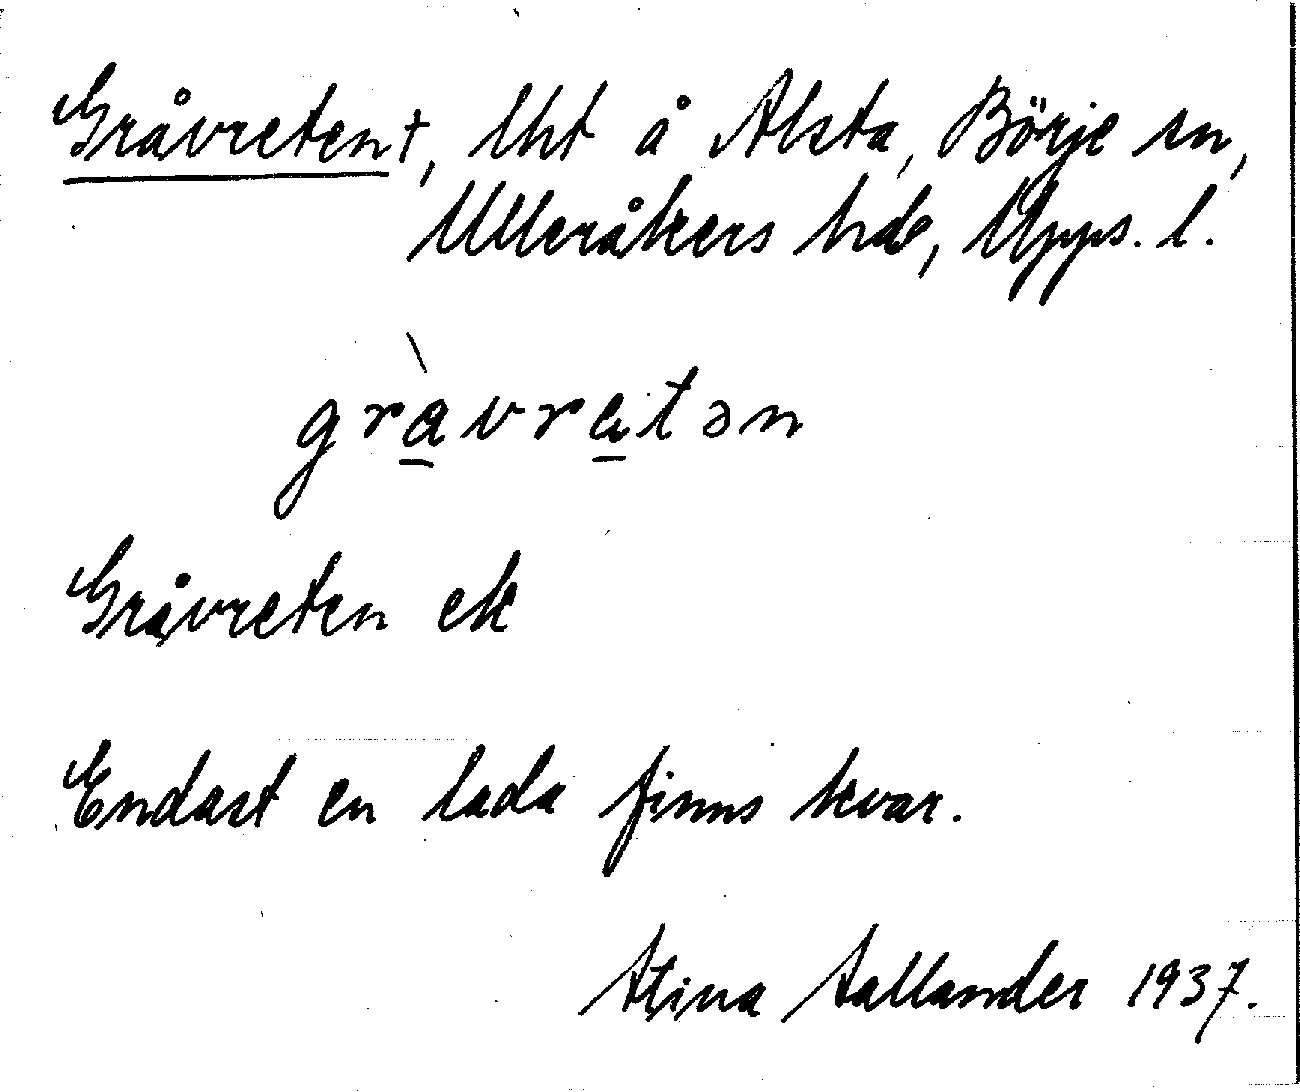 Gråvreten†, lht å Alsta, Börje sn,
Ulleråkers hde, Upps. l.
gràvretən
Gråvreten ek
Endast en lada finns kvar.
Stina Sallander 1937.